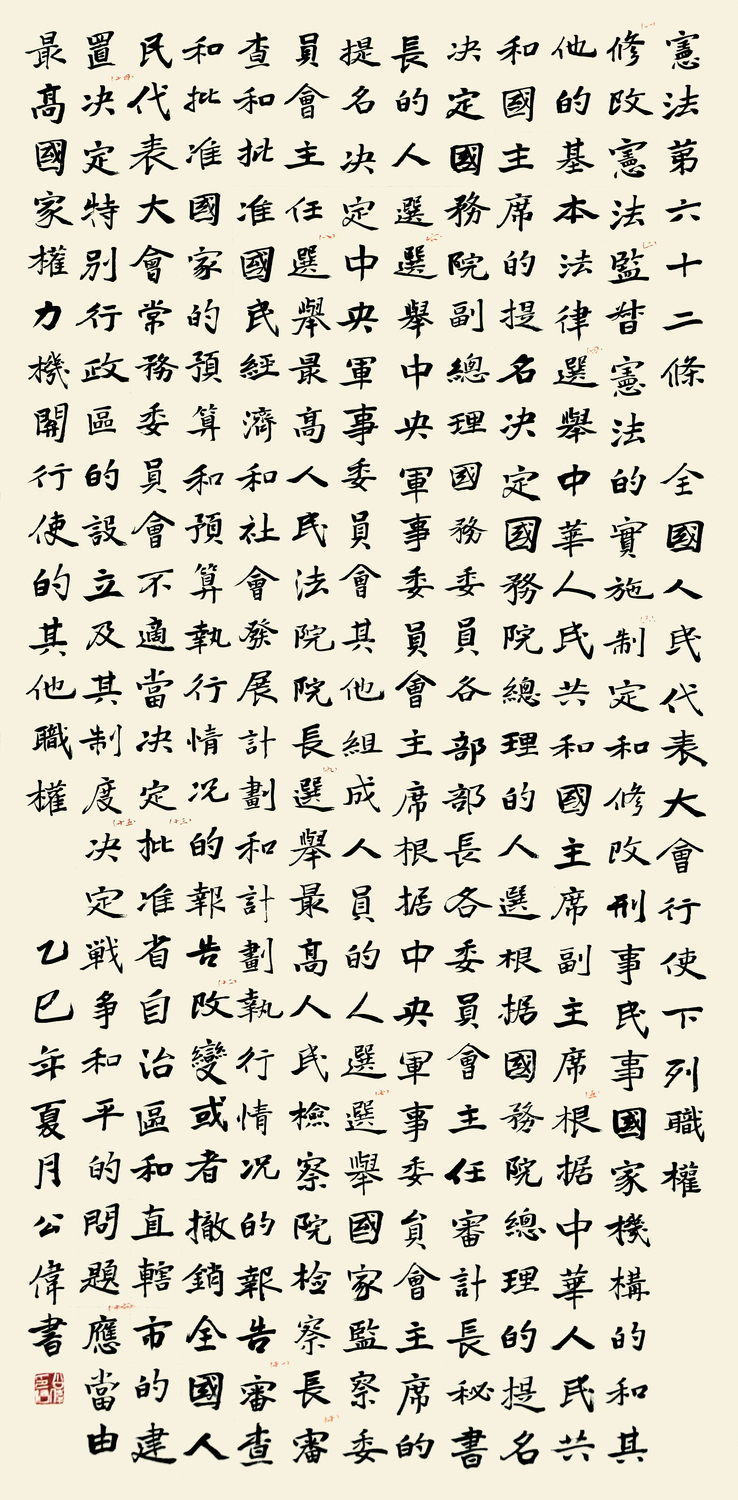 憲法第六十二條　全國人民代表大會行使下列職權
修改憲法監督憲法的實施制定和修改刑事民事國家機構的和其
他的基本法律選舉中華人民共和國主席副主席根据中華人民共
和國主席的提名决定國務院總理的人選根据國務院總理的提名
决定國務院副總理國務委員各部部長各委員會主任審計長秘書
長的人選選舉中央軍事委員會主席根据中央軍事委員會主席的
提名决定中央軍事委員會其他組成人員的人選選舉國家監察委
員會主任選舉最高人民法院院長選舉最高人民檢察院检察長審
查和批准國民經濟和社會發展計劃和計劃執行情况的報告審查
和批准國家的預算和預算執行情况的報告改變或者撤銷全國人
民代表大會常務委員會不適當决定批准省自治區和直轄市的建
置决定特別行政區的設立及其制度决定戰争和平的問題應當由
最高國家權力機關行使的其他職權　乙巳年夏月公偉書